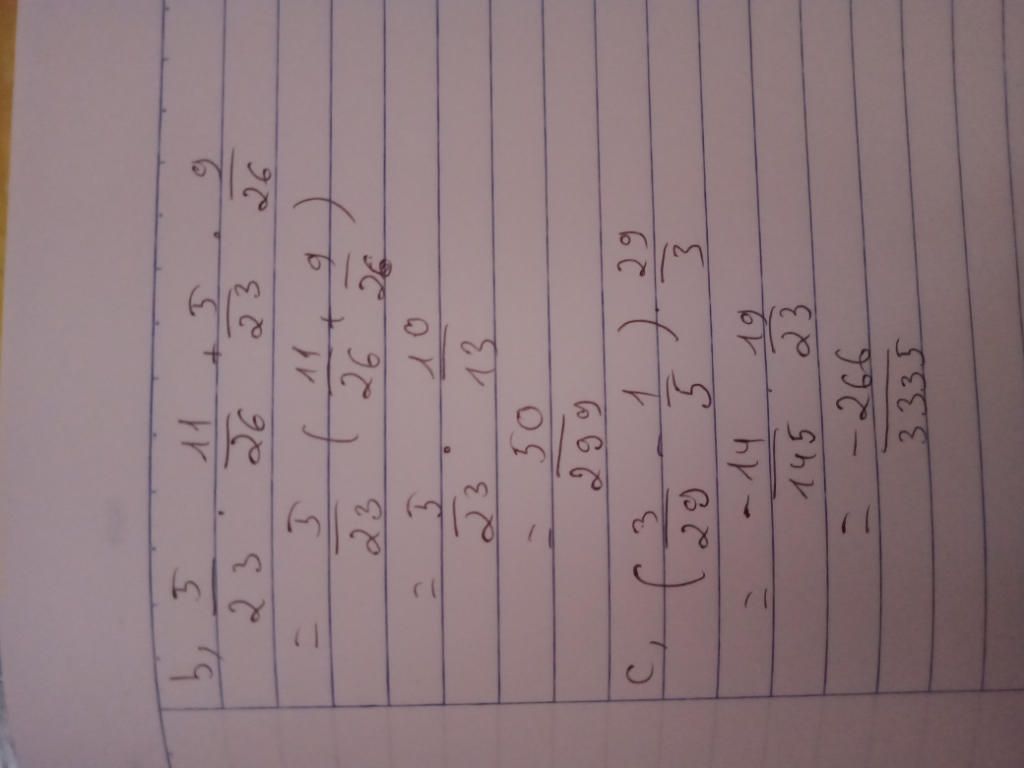 b, 5/23 . 11/26 + 5/23 . 9/26
= 5/23 ( 11/26 + 9/26 )
= 5/23 . 10/13
= 50/299
c, ( 3/29 - 1/5 ) . 29/3
= -14/145 . 19/23
= -266/3335